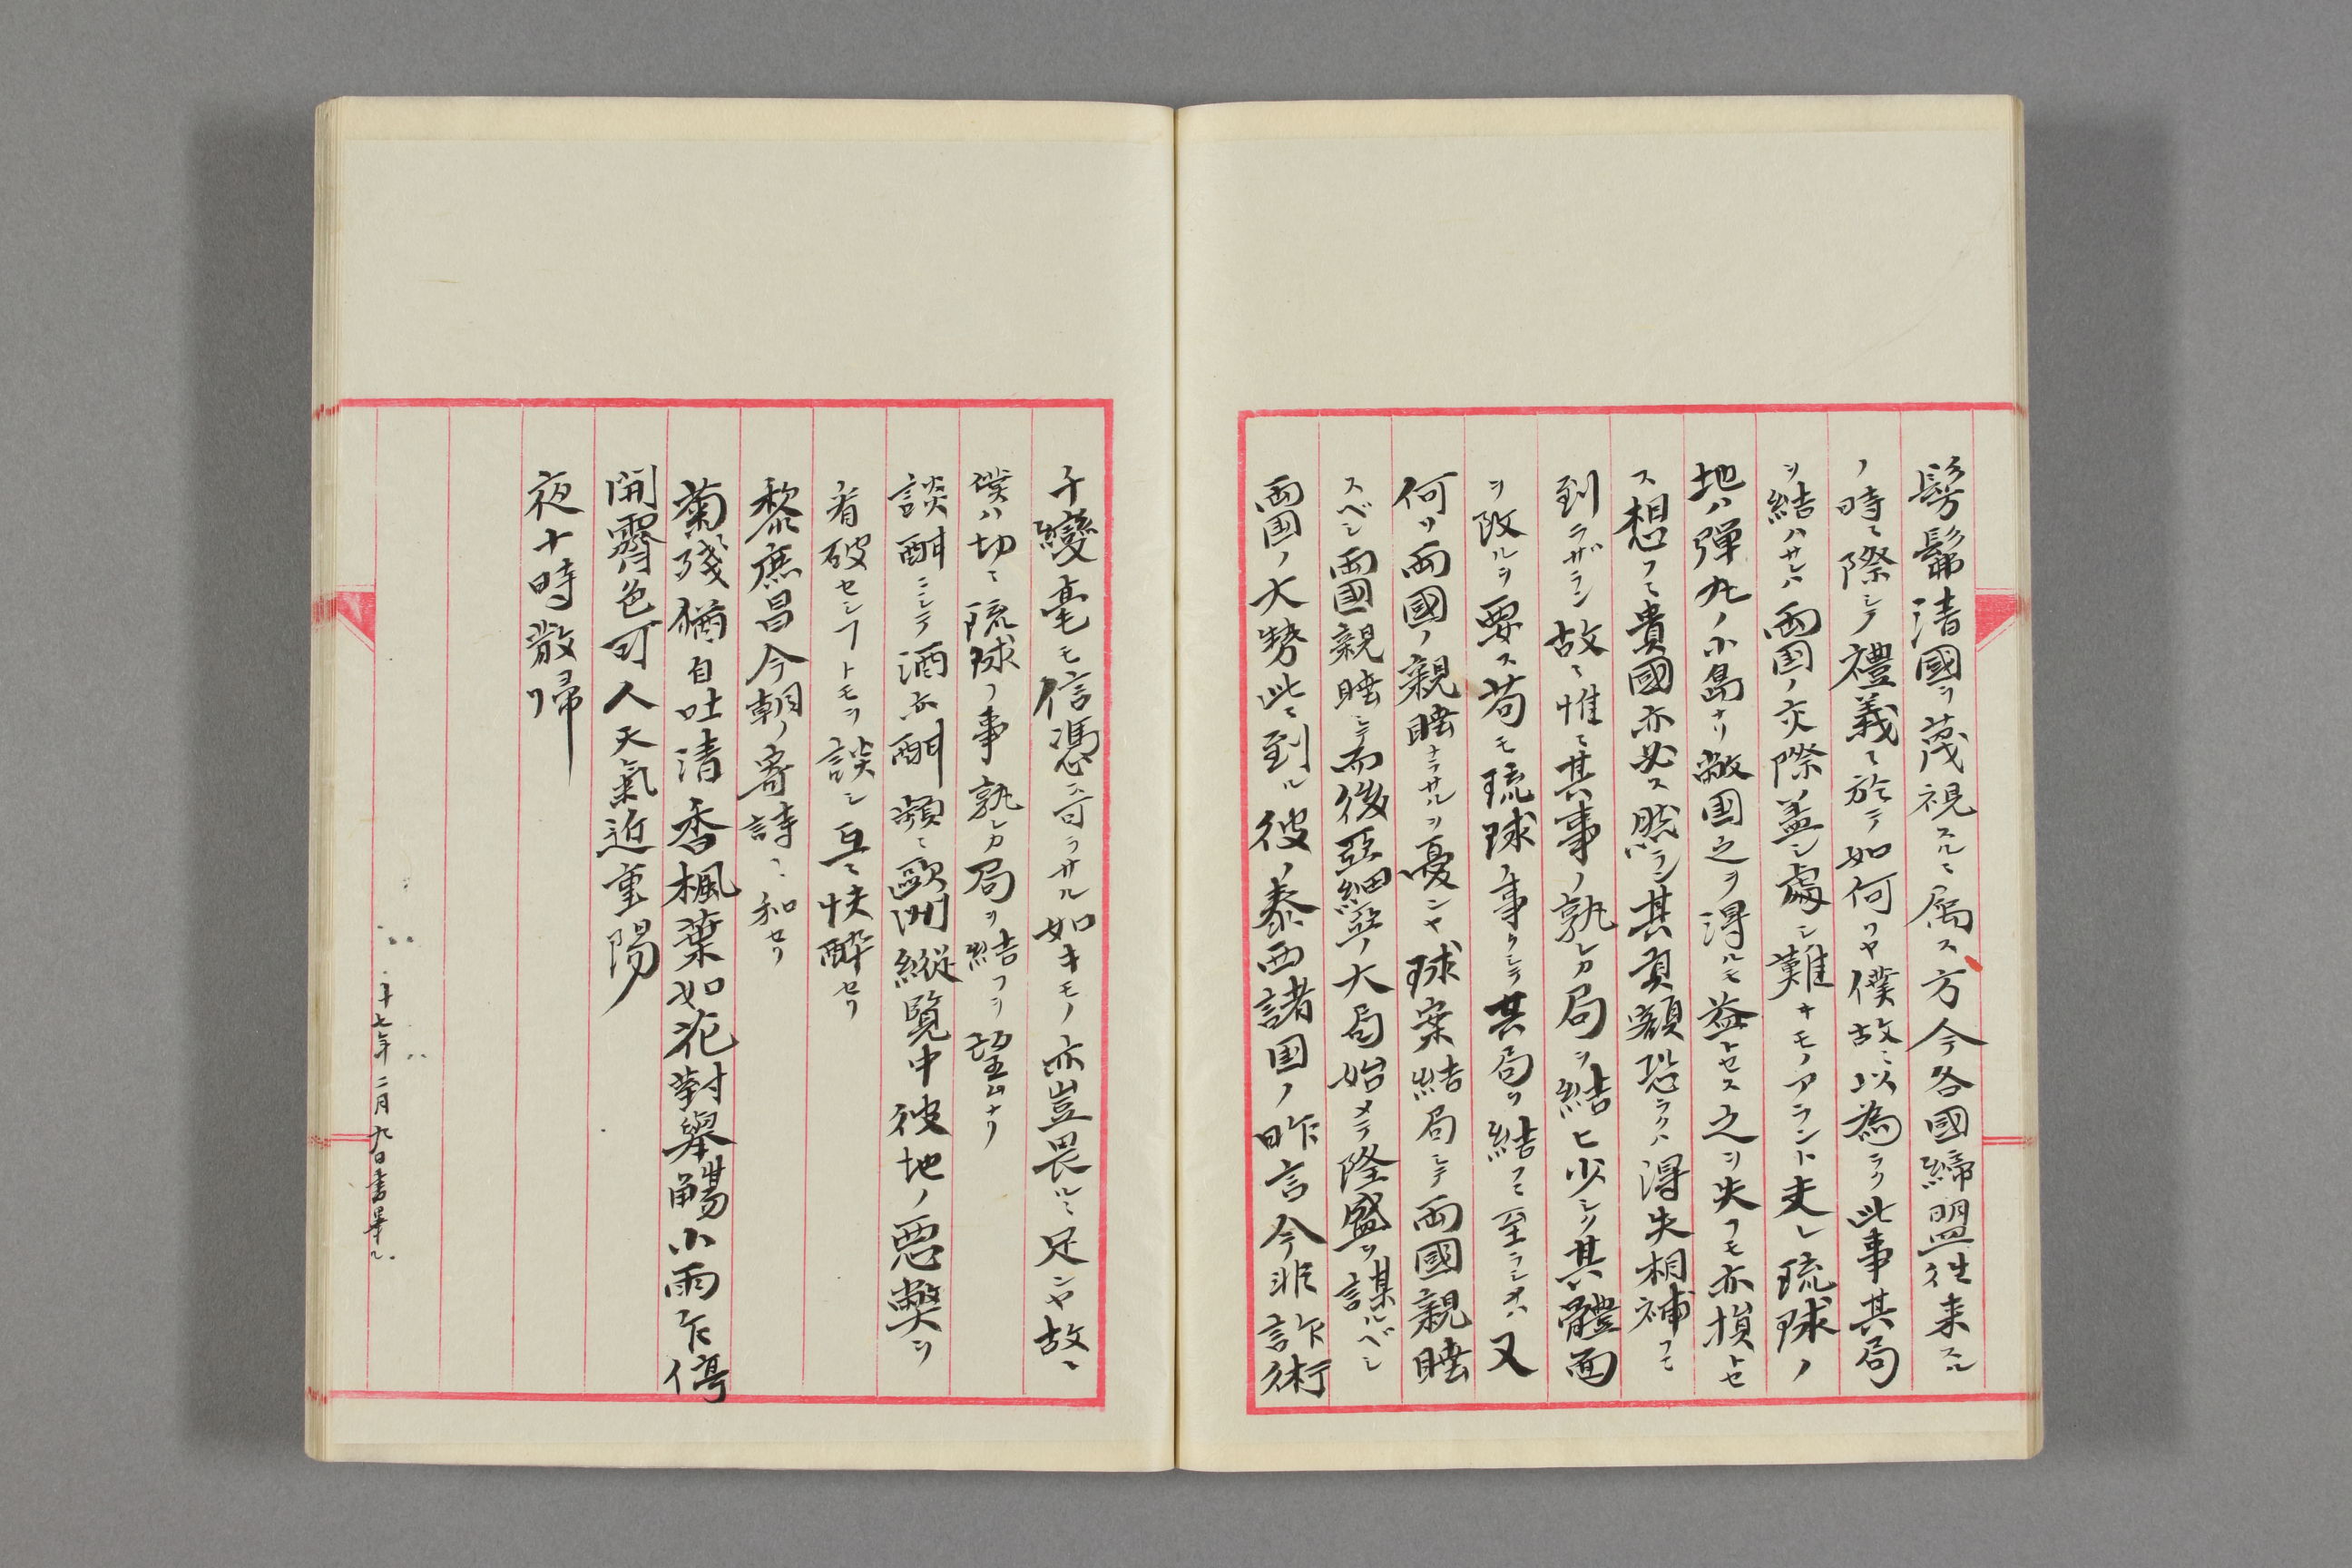 髣髴清國ヲ蔑視スルニ属ス方今各國締盟往来スル
ノ時ニ際シテ禮義ニ於テ如何ソヤ僕故ニ以為ラク此事其局
ヲ結ハサレハ両国ノ交際蓋シ處シ難キモノアラント夫レ琉球ノ
地ハ弾丸ノ小島ナリ敝国之ヲ得ルモ益トセス之ヲ失フモ亦損トセ
ス想フニ貴國亦必ス然ラン其頁額恐ラクハ得失相補フニ
到ラザラン故ニ惟ニ其事ノ孰レカ局ヲ結ヒ少シク其體面
ヲ改ルヲ要ス苟モ琉球ノ事クシテ其局ヲ結フニ至ラシメハ又
何ソ両國ノ親睦ナラサルヲ憂ンヤ球案結局シテ両國親睦
スベシ両國親睦シテ而後亞細亞ノ大局始メテ隆盛ヲ謀ルベシ
両国ノ大勢此ニ到ル彼ノ泰西諸国ノ昨言今非詐術
千變毫モ信憑ス可ラサル如キモノ亦豈畏ルニ足ンヤ故ニ
僕ハ切ニ琉球ノ事孰レカ局ヲ結フヲ望ムナリ
談酣ニシテ酒亦酣頻ニ歐洲縦覧中彼地ノ惡弊ヲ
看破セシフトモヲ談シ互ニ快酔セリ
黎庶昌今朝ノ寄詩ニ和セリ
菊殘猶自吐清香楓葉如花對擧觴小雨乍停
開霽色可人天氣近重陽
夜十時散帰リ
十七年二月九日書畢ル